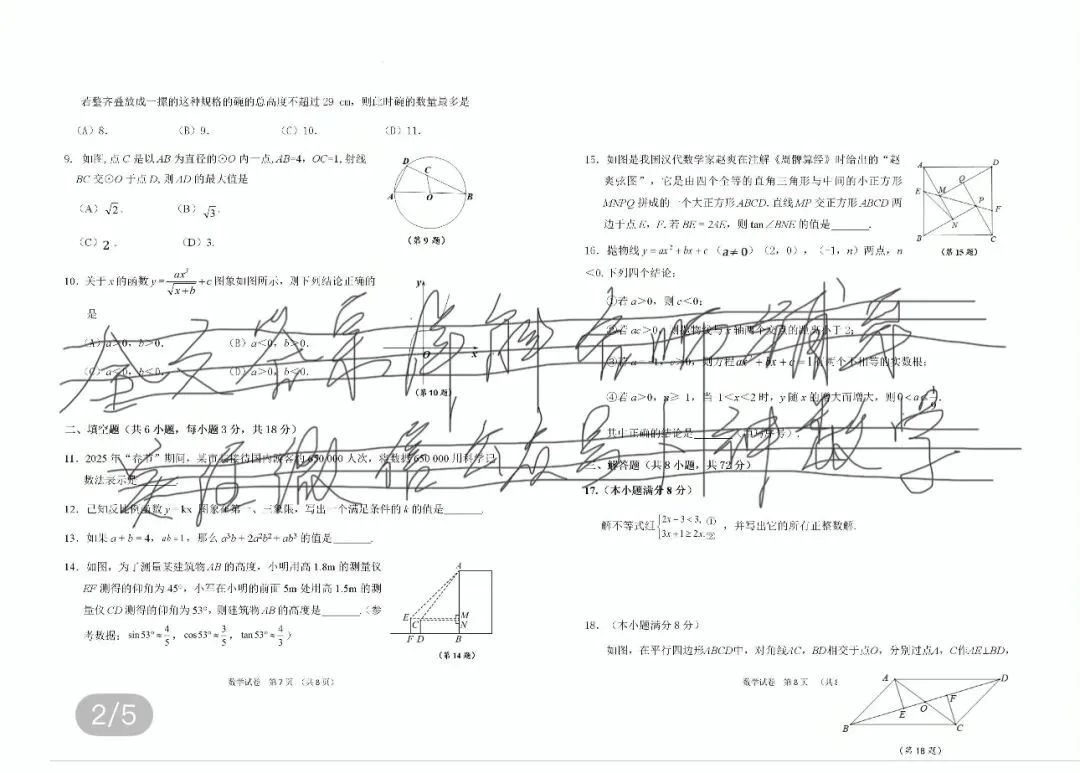 若整齐叠放成一摞的这种规格的碗的总高度不超过29 cm，则此时碗的数量最多是
(A) 8. (B) 9. (C) 10. (D) 11.
9. 如图,点 C 是以 AB 为直径的⊙O 内一点,AB=4，OC=1,射线
BC 交⊙O 于点 D. 则 AD 的最大值是
(A) √2. (B) √3.
(C) 2. (D) 3.
D
C
A
O
B
(第 9 题)
10. 关于 x 的函数 y = ax³/√(x+b) + c 图象如图所示，则下列结论正确的
是
(A) a>0，b>0. (B) a<0，b>0.
(C) a<0，b<0. (D) a>0，b<0.
y
O
x
(第 10 题)
二、填空题（共 6 小题，每小题 3 分，共 18 分）
11. 2025 年“春节”期间，某市 接待国内游客约 650 000 人次，将数据 650 000 用科学记
数法表示是
12. 已知反比例函数 y = kx 图象在第一、三象限，写出一个满足条件的 k 的值是______.
13. 如果 a + b = 4，ab = 1，那么 a³b + 2a²b² + ab³ 的值是______.
14. 如图，为了测量某建筑物 AB 的高度，小明用高 1.8m 的测量仪
EF 测得的仰角为 45°，小军在小明的前面 5m 处用高 1.5m 的测
量仪 CD 测得的仰角为 53°，则建筑物 AB 的高度是______.（参
考数据：sin53°≈4/5，cos53°≈3/5，tan53°≈4/3）
A
E
C
M
N
F D
B
(第 14 题)
数学试卷 第 7 页 （共 8 页）
2/5
15. 如图是我国汉代数学家赵爽在注解《周髀算经》时给出的“赵
爽弦图”，它是由四个全等的直角三角形与中间的小正方形
MNPQ 拼成的一个大正方形 ABCD. 直线 MP 交正方形 ABCD 两
边于点 E，F. 若 BE = 2AE，则 tan∠BNE 的值是______.
A
D
Q
E
M
P
F
N
B
C
(第 15 题)
16. 抛物线 y = ax² + bx + c（a≠0）(2，0)，(-1，n) 两点，n
<0. 下列四个结论：
①若 a>0，则 c<0；
②若 ac>0，则抛物线与 x 轴两个交点的距离小于 2；
③若 a = -1，c>0，则方程 ax² + bx + c = 1 有两个不相等的实数根；
④若 a>0，n≥-1，当 1<x<2 时，y 随 x 的增大而增大，则 0<a≤
其中正确的结论是______（填写序号）.
三、解答题（共 8 小题，共 72 分）
17.（本小题满分 8 分）
解不等式组 {2x-3<3, ① 3x+1≥2x. ②，并写出它的所有正整数解.
18. （本小题满分 8 分）
如图，在平行四边形ABCD中，对角线AC，BD相交于点O，分别过点A，C作AE⊥BD，
数学试卷 第 8 页 （共 8
A
D
F
E
O
B
C
(第 18 题)
全文答案
关注微信公众号 神数学